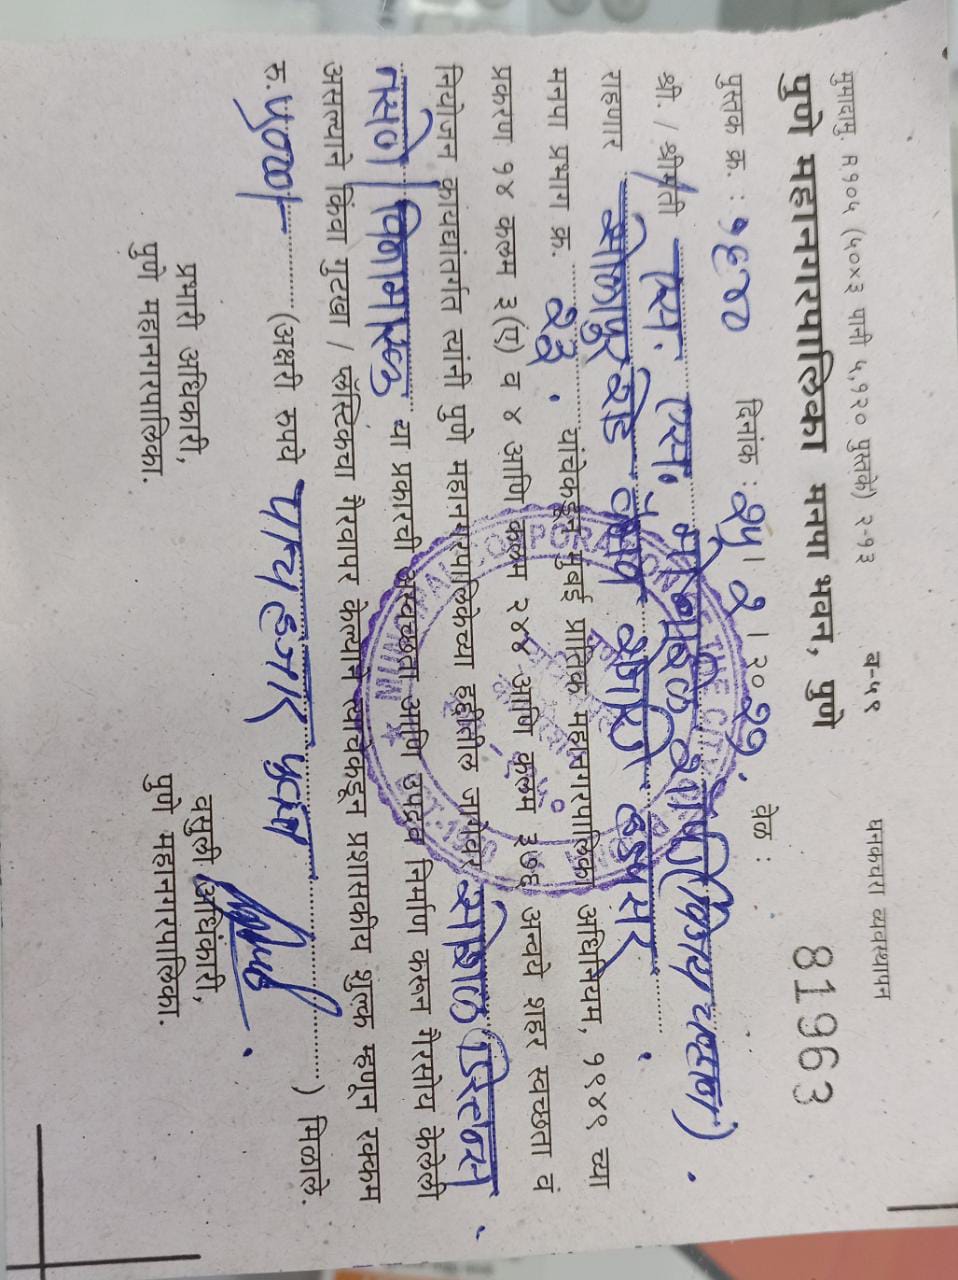 मुमादामु. R१०५ (५०×३ पानी ५,१२० पुस्तके) २-१३ व-५१ घनकचरा व्यवस्थापन
पुणे महानगरपालिका मनपा भवन, पुणे 81963
पुस्तक क्र. : १६४० दिनांक : २५ । २ । २०२१. वेळ :
श्री. / श्रीमती एस. एस. मोबाईल शॉपी
राहणार सोलापूर रोड हडपसर
मनपा प्रभाग क्र. २३ यांचेकडून मुंबई प्रांतिक महानगरपालिका अधिनियम, १९४९ च्या
प्रकरण १४ कलम ३(ए) व ४ आणि कलम २४४ आणि कलम ३७६ अन्वये शहर स्वच्छता वं
नियोजन कायद्यांतर्गत त्यांनी पुणे महानगरपालिकेच्या हद्दीतील जागेवर सोशल डिस्टन्स
नसणे / विनामास्क या प्रकारची अस्वच्छता आणि उपद्रव निर्माण करून गैरसोय केलेली
असल्याने किंवा गुटखा / प्लॅस्टिकचा गैरवापर केल्याने त्यांचेकडून प्रशासकीय शुल्क म्हणून रक्कम
रु. ५०००/- (अक्षरी रुपये पाच हजार फक्त) मिळाले.
प्रभारी अधिकारी, वसुली अधिकारी,
पुणे महानगरपालिका. पुणे महानगरपालिका.
MUNICIPAL CORPORATION OF THE CITY OF POONA
EST. 1950